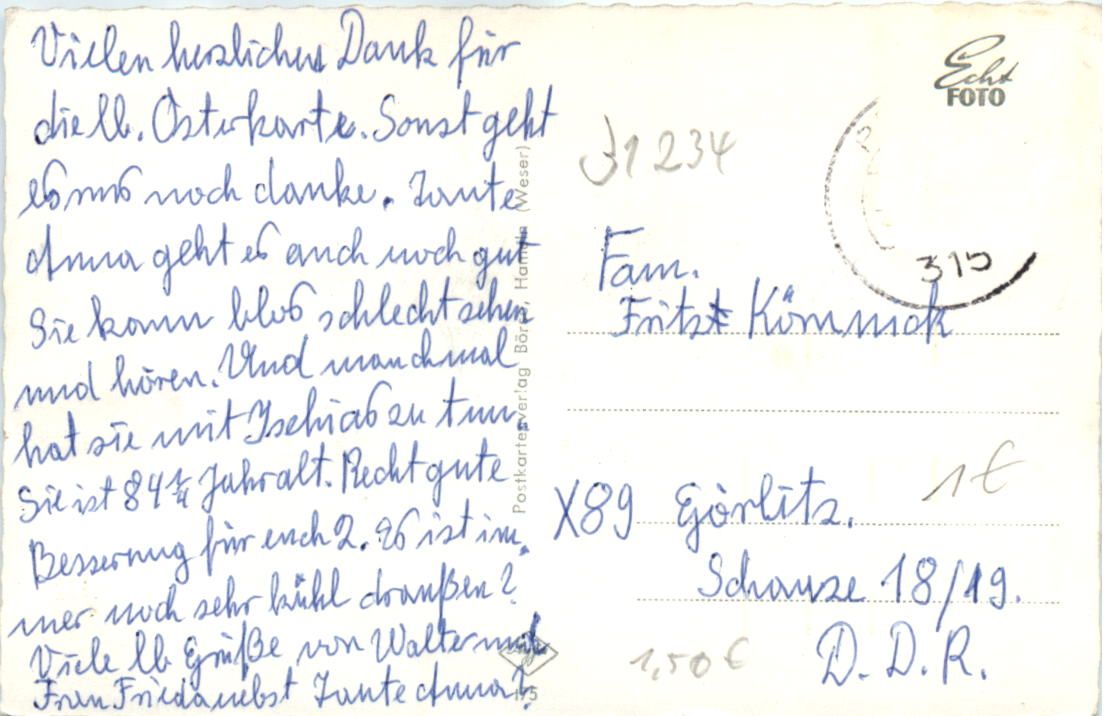 Vielen herzlichen Dank für
die lb. Osterkarte. Sonst geht
es uns noch danke. Tante
Anna geht es auch noch gut
Sie kann blos schlecht sehen
und hören. Und manchmal
hat sie mit Ischias zu tun.
Sie ist 84 1/4 Jahr alt. Recht gute
Besserung für euch 2. Es ist im-
mer noch sehr kühl draußen?
Viele lb Grüße von Walter und
Frau Frieda nebst Tante Anna!
Postkartenverlag Börner, Hameln (Weser)
175
Echt
FOTO
31234
315
Fam.
Fritz Kömmick
X89 Görlitz.
Schanze 18/19.
D. D. R.
1 €
1,50 €